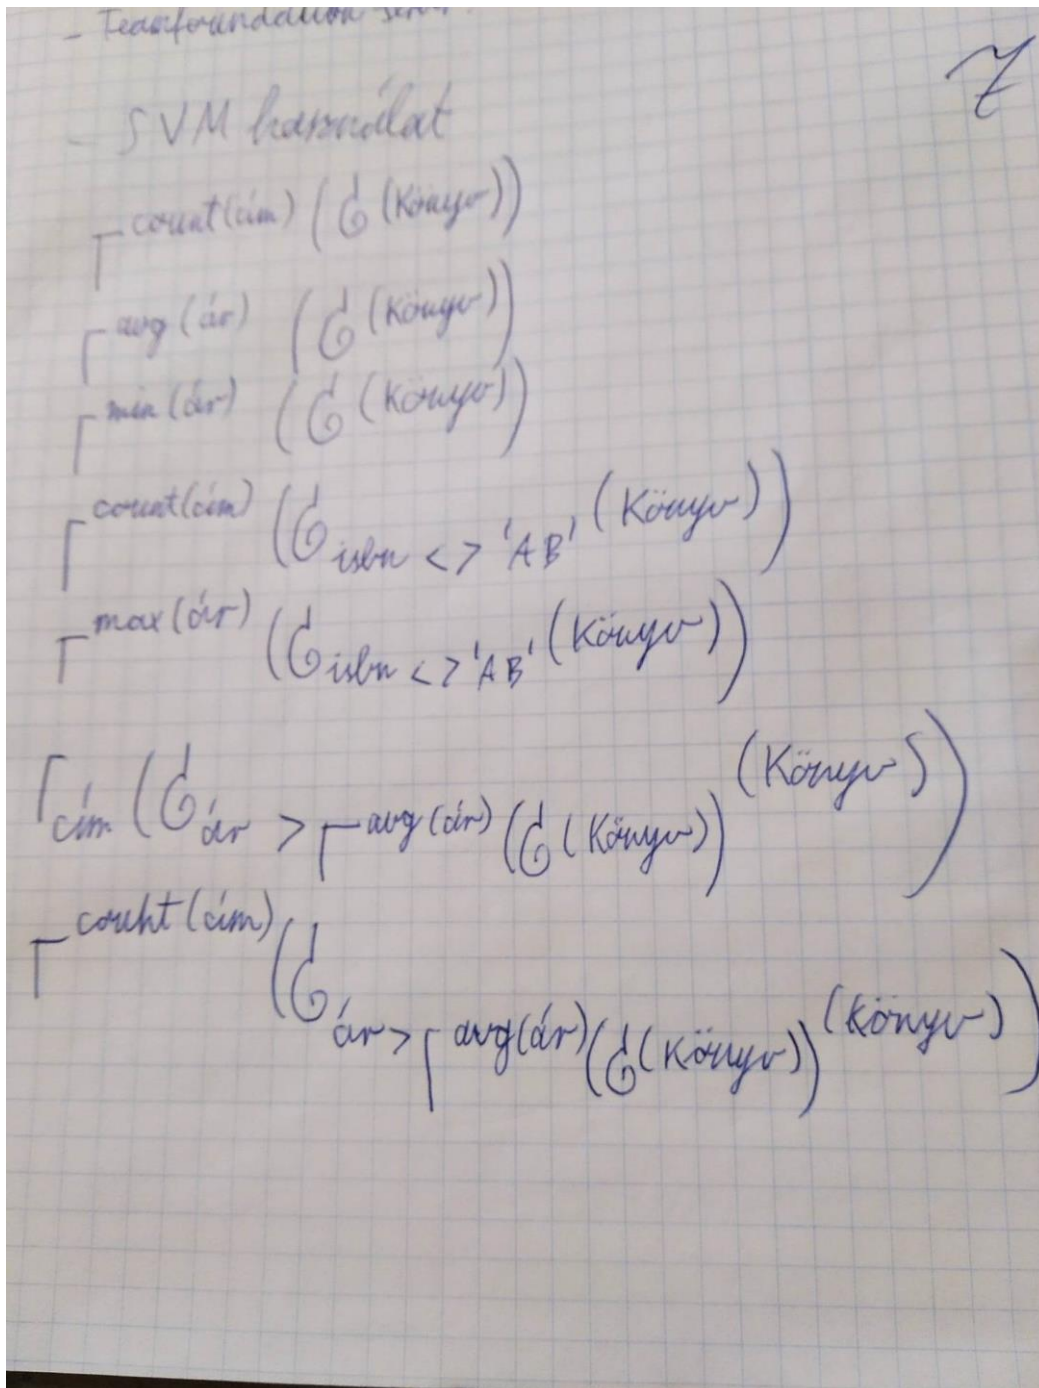 - Teamfoundation server
7
- SVM használat
Γ count(cím) (σ (Könyv))
Γ avg(ár) (σ (Könyv))
Γ min(ár) (σ (Könyv))
Γ count(cím) (σ isbn <> 'AB' (Könyv))
Γ max(ár) (σ isbn <> 'AB' (Könyv))
Γ cím (σ ár > Γ avg(ár) (σ (Könyv)) (Könyv))
Γ count(cím) (σ ár > Γ avg(ár) (σ (Könyv)) (Könyv))